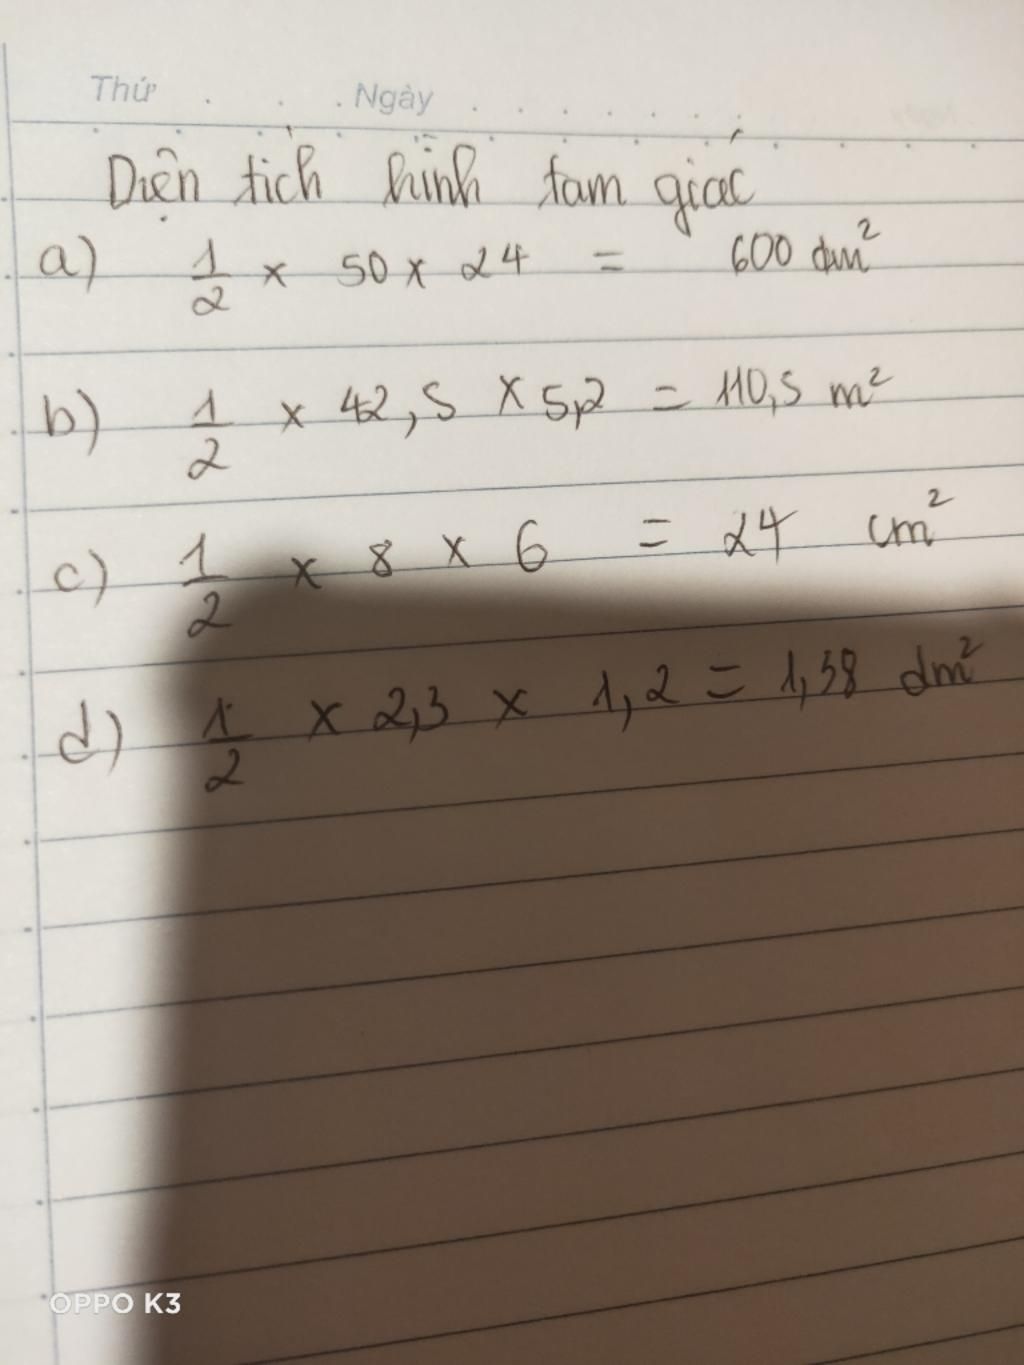 Thứ . . . Ngày . . . . . . .
Diện tích hình tam giác
a) 1/2 × 50 × 24 = 600 dm²
b) 1/2 × 42,5 × 5,2 = 110,5 m²
c) 1/2 × 8 × 6 = 24 cm²
d) 1/2 × 2,3 × 1,2 = 1,38 dm²
OPPO K3